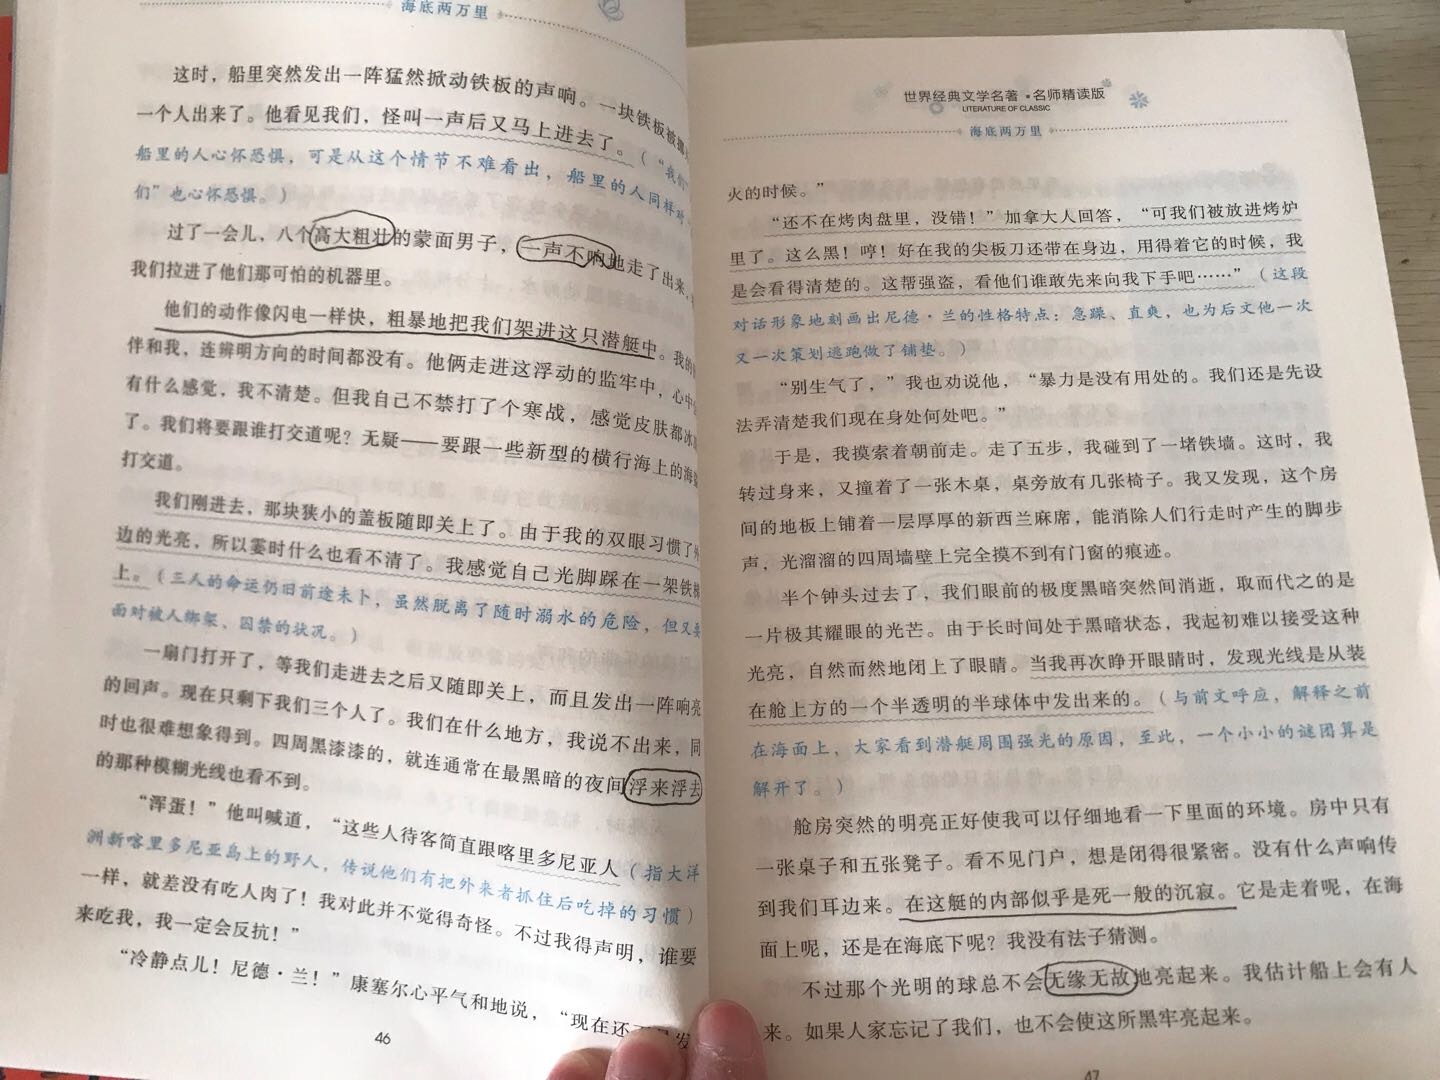 海底两万里
这时，船里突然发出一阵猛然掀动铁板的声响。一块铁板被掀
一个人出来了。他看见我们，怪叫一声后又马上进去了。（“我们”
船里的人心怀恐惧，可是从这个情节不难看出，船里的人同样对
们”也心怀恐惧。）
过了一会儿，八个高大粗壮的蒙面男子，一声不响地走了出来，
我们拉进了他们那可怕的机器里。
他们的动作像闪电一样快，粗暴地把我们架进这只潜艇中。我的
伴和我，连辨明方向的时间都没有。他俩走进这浮动的监牢中，心中
有什么感觉，我不清楚。但我自己不禁打了个寒战，感觉皮肤都冰
了。我们将要跟谁打交道呢？无疑——要跟一些新型的横行海上的海盗
打交道。
我们刚进去，那块狭小的盖板随即关上了。由于我的双眼习惯了
边的光亮，所以霎时什么也看不清了。我感觉自己光脚踩在一架铁梯
上。（三人的命运仍旧前途未卜，虽然脱离了随时溺水的危险，但又要
面对被人绑架、囚禁的状况。）
一扇门打开了，等我们走进去之后又随即关上，而且发出一阵响亮
的回声。现在只剩下我们三个人了。我们在什么地方，我说不出来，同
时也很难想象得到。四周黑漆漆的，就连通常在最黑暗的夜间浮来浮去
的那种模糊光线也看不到。
“浑蛋！”他叫喊道，“这些人待客简直跟喀里多尼亚人（指大洋
洲新喀里多尼亚岛上的野人，传说他们有把外来者抓住后吃掉的习惯）
一样，就差没有吃人肉了！我对此并不觉得奇怪。不过我得声明，谁要
来吃我，我一定会反抗！”
“冷静点儿！尼德·兰！”康塞尔心平气和地说，“现在还
46
世界经典文学名著·名师精读版
LITERATURE OF CLASSIC
海底两万里
火的时候。”
“还不在烤肉盘里，没错！”加拿大人回答，“可我们被放进烤炉
里了。这么黑！哼！好在我的尖板刀还带在身边，用得着它的时候，我
是会看得清楚的。这帮强盗，看他们谁敢先来向我下手吧……”（这段
对话形象地刻画出尼德·兰的性格特点：急躁、直爽，也为后文他一次
又一次策划逃跑做了铺垫。）
“别生气了，”我也劝说他，“暴力是没有用处的。我们还是先设
法弄清楚我们现在身处何处吧。”
于是，我摸索着朝前走。走了五步，我碰到了一堵铁墙。这时，我
转过身来，又撞着了一张木桌，桌旁放有几张椅子。我又发现，这个房
间的地板上铺着一层厚厚的新西兰麻席，能消除人们行走时产生的脚步
声，光溜溜的四周墙壁上完全摸不到有门窗的痕迹。
半个钟头过去了，我们眼前的极度黑暗突然间消逝，取而代之的是
一片极其耀眼的光芒。由于长时间处于黑暗状态，我起初难以接受这种
光亮，自然而然地闭上了眼睛。当我再次睁开眼睛时，发现光线是从装
在舱上方的一个半透明的半球体中发出来的。（与前文呼应，解释之前
在海面上，大家看到潜艇周围强光的原因，至此，一个小小的谜团算是
解开了。）
舱房突然的明亮正好使我可以仔细地看一下里面的环境。房中只有
一张桌子和五张凳子。看不见门户，想是闭得很紧密。没有什么声响传
到我们耳边来。在这艇的内部似乎是死一般的沉寂。它是走着呢，在海
面上呢，还是在海底下呢？我没有法子猜测。
不过那个光明的球总不会无缘无故地亮起来。我估计船上会有人
来。如果人家忘记了我们，也不会使这所黑牢亮起来。
47